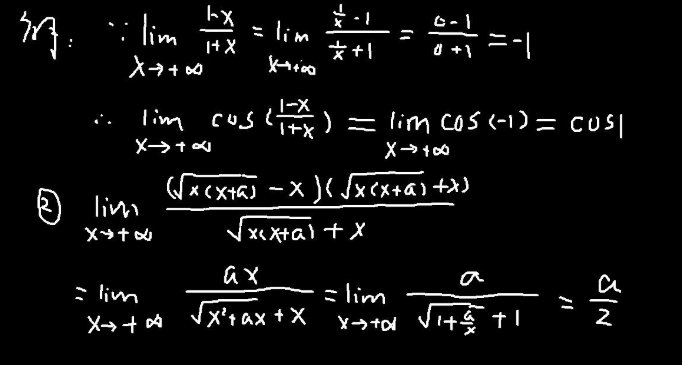 解: ∵ lim_{x→+∞} (1-x)/(1+x) = lim_{x→+∞} (1/x - 1)/(1/x + 1) = (0-1)/(0+1) = -1
∴ lim_{x→+∞} cos((1-x)/(1+x)) = lim_{x→+∞} cos(-1) = cos1
② lim_{x→+∞} (√(x(x+a)) - x)(√(x(x+a)) + x) / (√(x(x+a)) + x)
= lim_{x→+∞} ax/(√(x²+ax) + x) = lim_{x→+∞} a/(√(1+a/x) + 1) = a/2